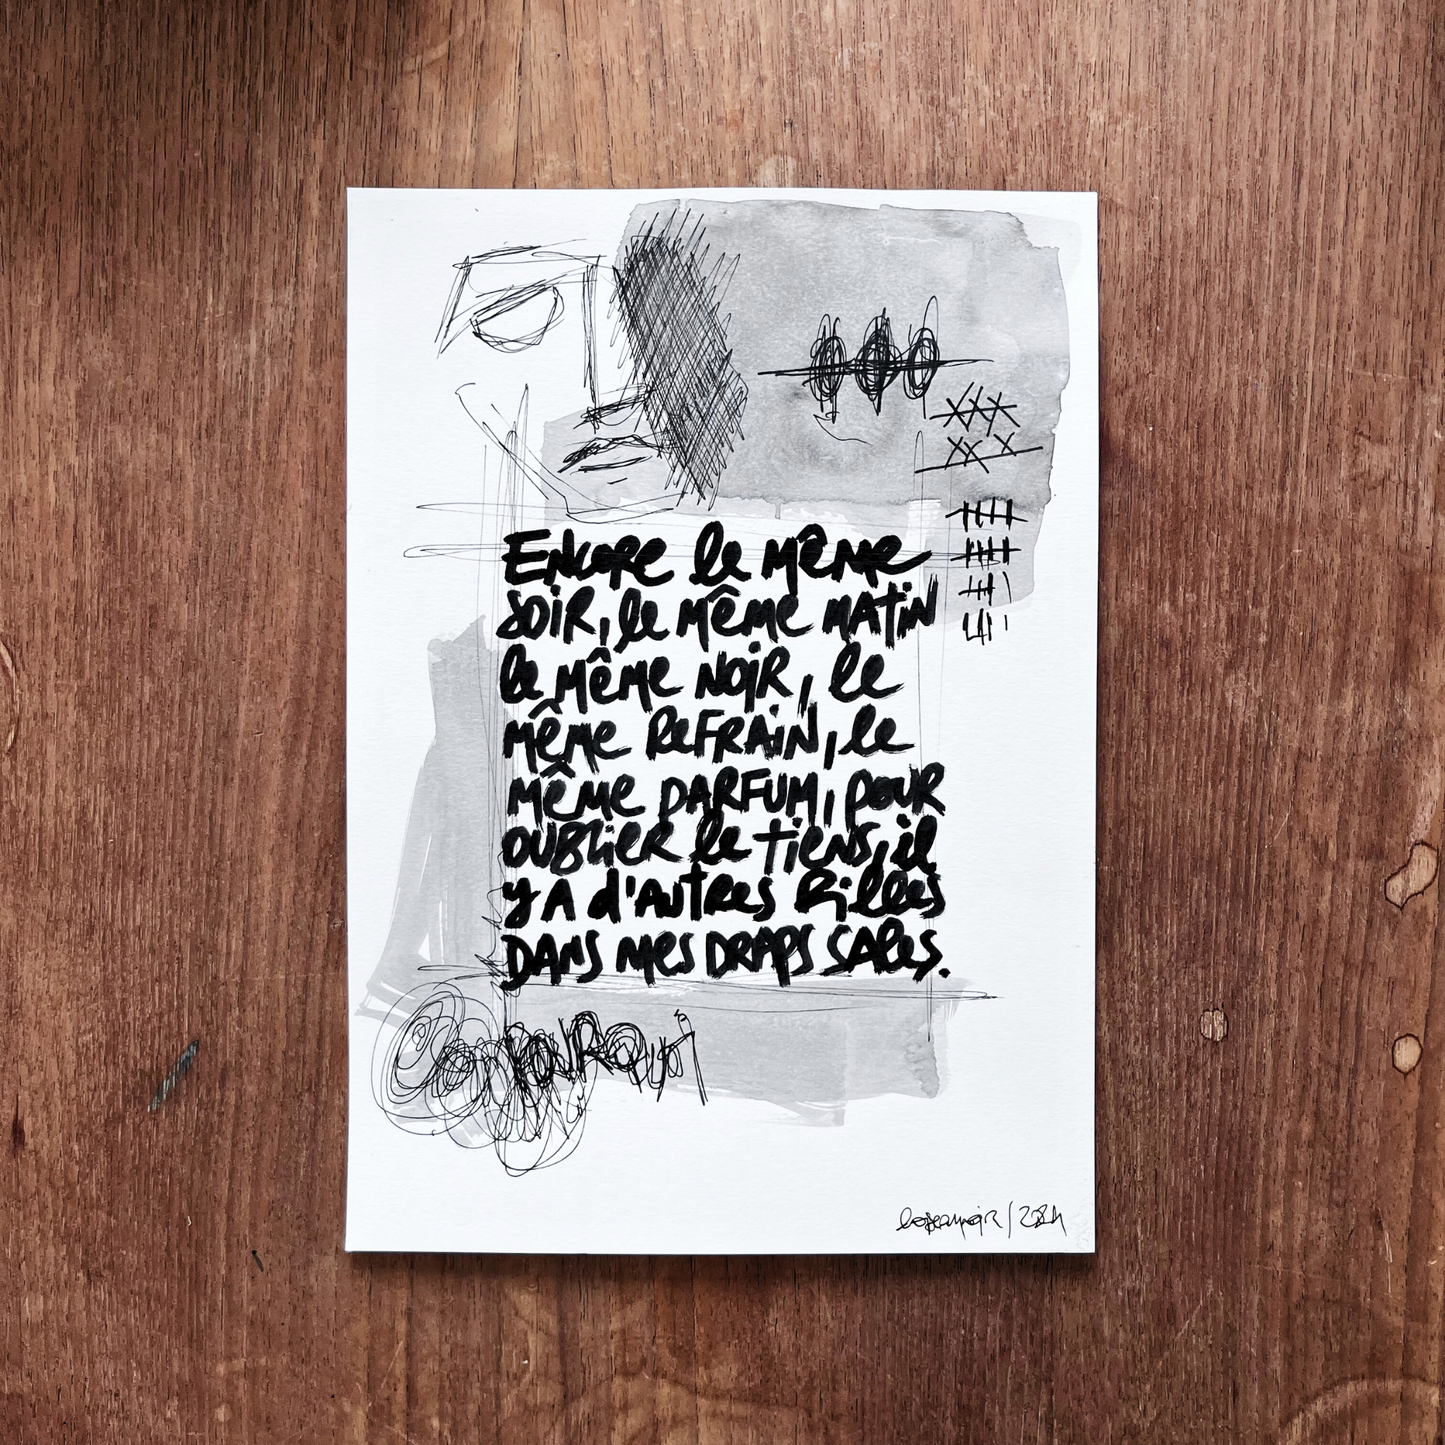 XXX
XX X
Encore le même
soir, le même matin
le même noir, le
même refrain, le
même parfum, pour
oublier le tiens, il
y a d'autres filles
dans mes draps sales.